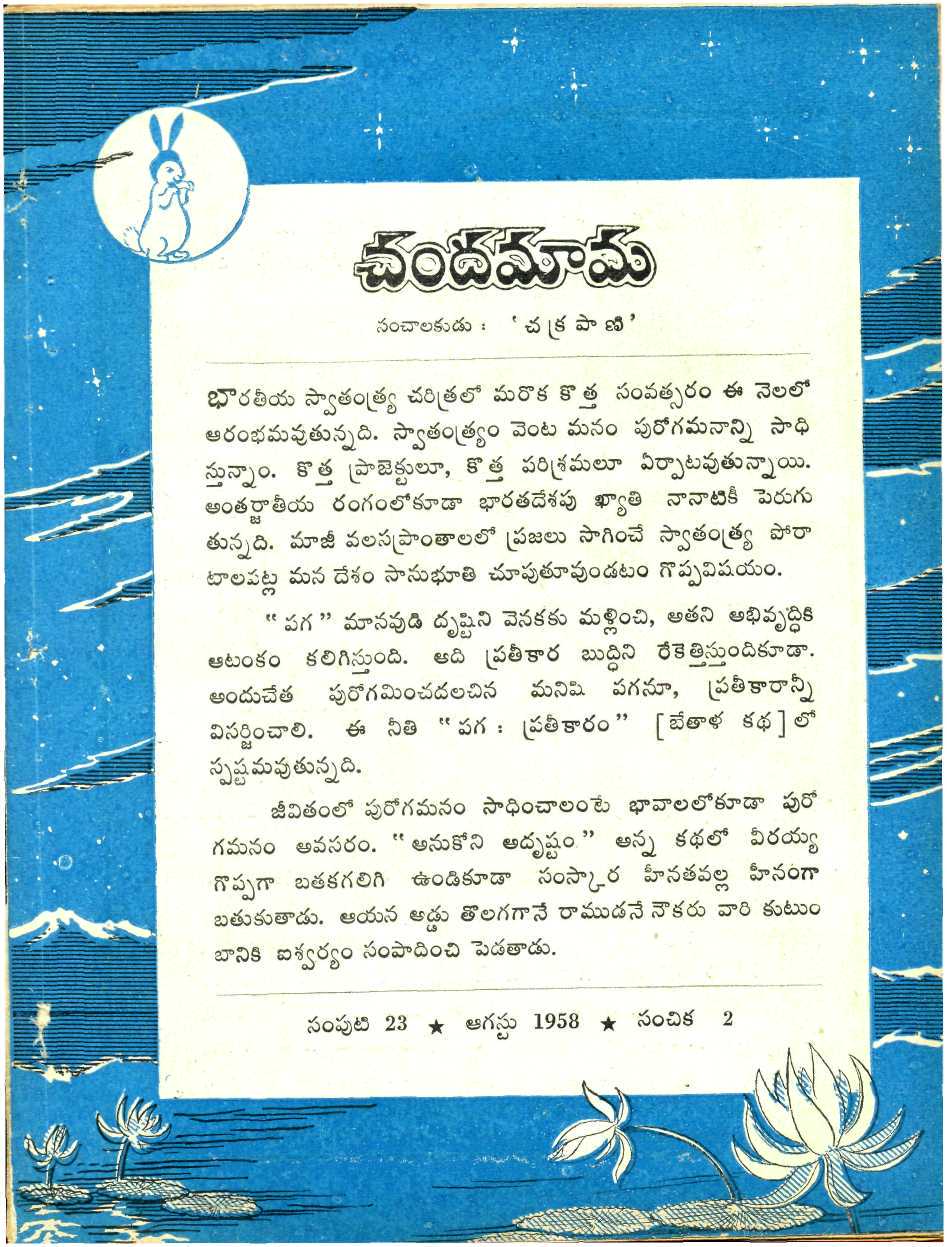 చందమామ
సంచాలకుడు : ‘చక్రపాణి’
భారతీయ స్వాతంత్ర్య చరిత్రలో మరొక కొత్త సంవత్సరం ఈ నెలలో
ఆరంభమవుతున్నది. స్వాతంత్ర్యం వెంట మనం పురోగమనాన్ని సాధి
స్తున్నాం. కొత్త ప్రాజెక్టులూ, కొత్త పరిశ్రమలూ ఏర్పాటవుతున్నాయి.
అంతర్జాతీయ రంగంలోకూడా భారతదేశపు ఖ్యాతి నానాటికీ పెరుగు
తున్నది. మాజీ వలసప్రాంతాలలో ప్రజలు సాగించే స్వాతంత్ర్య పోరా
టాలపట్ల మన దేశం సానుభూతి చూపుతూవుండటం గొప్పవిషయం.
“పగ” మానవుడి దృష్టిని వెనకకు మళ్లించి, అతని అభివృద్ధికి
ఆటంకం కలిగిస్తుంది. అది ప్రతీకార బుద్ధిని రేకెత్తిస్తుందికూడా.
అందుచేత పురోగమించదలచిన మనిషి పగనూ, ప్రతీకారాన్నీ
విసర్జించాలి. ఈ నీతి “పగ : ప్రతీకారం” [బేతాళ కథ]లో
స్పష్టమవుతున్నది.
జీవితంలో పురోగమనం సాధించాలంటే భావాలలోకూడా పురో
గమనం అవసరం. “అనుకోని అదృష్టం” అన్న కథలో వీరయ్య
గొప్పగా బతకగలిగి ఉండికూడా సంస్కార హీనతవల్ల హీనంగా
బతుకుతాడు. ఆయన అడ్డు తొలగగానే రాముడనే నౌకరు వారి కుటుం
బానికి ఐశ్వర్యం సంపాదించి పెడతాడు.
సంపుటి 23 ★ ఆగస్టు 1958 ★ సంచిక 2